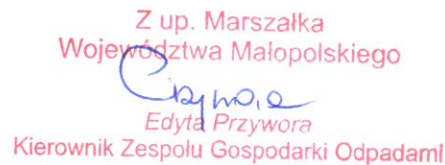 Z up. Marszałka
Województwa Małopolskiego
Edyta Przywora
Kierownik Zespołu Gospodarki Odpadami